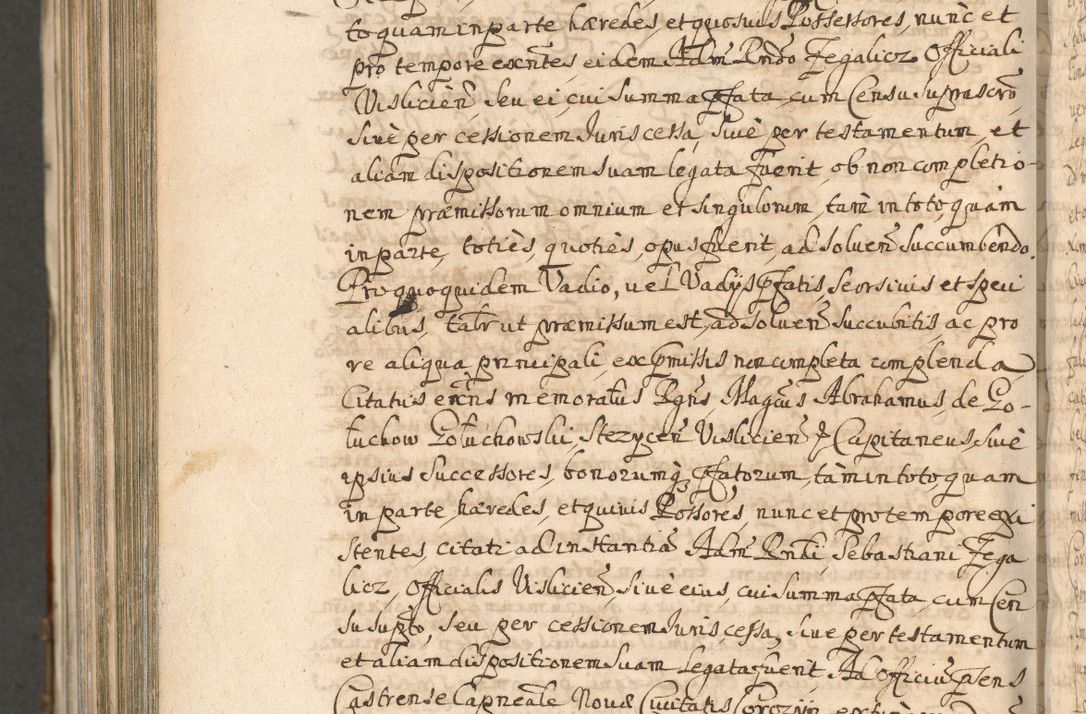 toquam in parte hæredes, et quosuis Possessores, nunc et
pro tempore exntes eidem Adm Rndo Zegalicz Officiali
Vislicien̄ seu ei, cui summa pfata cum Censu suprascro
siuè per cessionem Juris cessa, siuè per testamentum et
aliam dispositionem suam legata fuerit, ob non completio-
nem præmissorum omnium et singulorum, tam in toto, quàm
in parte, totiès, quotiès, opus fuerit, adsoluen̄ succumbendo.
Pro quoquidem Vadio, uel Vadys pfatis, seorsiuis et speci
alibus, talr ut præmissum est, adsoluen̄ succubitis, ac pro
re aliqua principali, ex pmissis non completa complenda
Citatus exns memoratus Rgns Magcus Abrahamus, de Go-
łuchow Gołuchowski, Stezycen̄ Vislicien̄ & Capitaneus, siuè
ipsius Successores, bonorumq pfatorum, tàm in toto quam
in parte, hæredes, et quiuis Possores, nunc et pro tempore exi
stentes, citati ad instantiā Adm Rndi Sebastiani Zega
licz, Officialis Vislicien̄ siuè eius, cui summa pfata, cum Cen
su supto, seu per cessionem Juris cessa, siue per testamentum
et aliam dispositionem suam legata fuerit Ad Officiū pēns
Castrense Capneale Nouæ Ciuitatis Corczyn